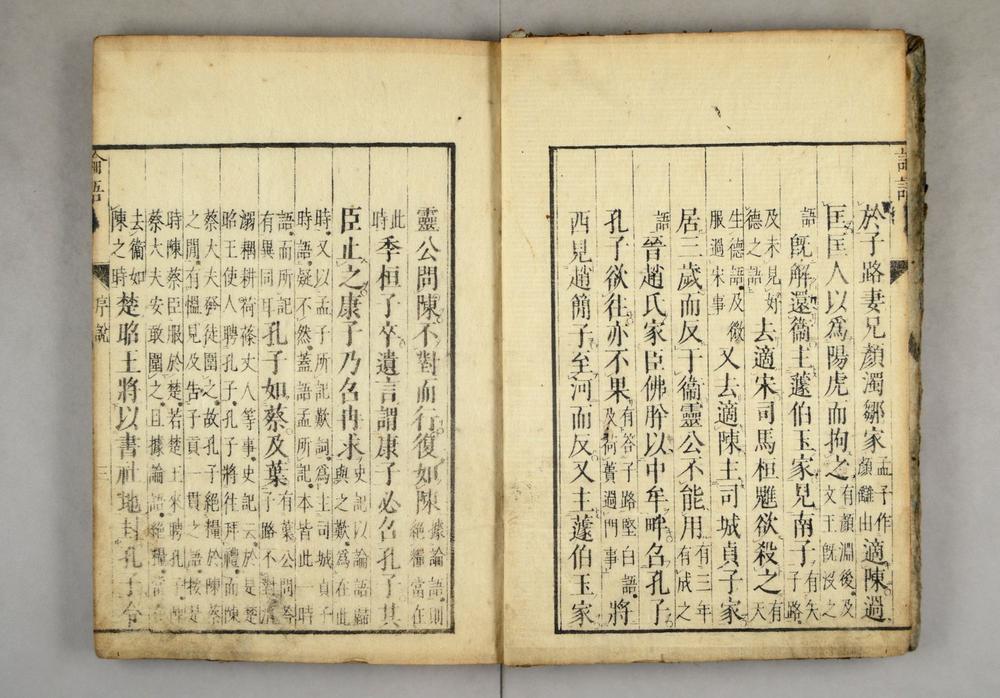 論語
於子路妻兄顏濁鄒家孟子作顏讎由適陳過
匡匡人以爲陽虎而拘之有顏淵後及文王旣没之
語旣解還衞主蘧伯玉家見南子有矢子路
及未見好德之語去適宋司馬桓魋欲殺之有天
生德語及微服過宋事又去適陳主司城貞子家
居三歲而反于衞靈公不能用有三年有成之
語晉趙氏家臣佛肸以中牟畔召孔子
孔子欲往亦不果有答子路堅白語及荷蕢過門事將
西見趙簡子至河而反又主蘧伯玉家
靈公問陳不對而行復如陳據論語則絕糧當在
此時季桓子卒遺言謂康子必召孔子其
臣止之康子乃召冉求史記以論語歸與之歎爲在此
時又以孟子所記歎詞爲主司城貞子時語疑不然蓋語孟所記本皆此一時
語而所記有異同耳孔子如蔡及葉有葉公問答子路不對沮
溺耦耕荷蓧丈人等事史記云於是楚昭王使人聘孔子孔子將往拜禮而陳
蔡大夫發徒圍之故孔子絕糧於陳蔡之間有慍見及告子貢一貫之語按是
時陳蔡臣服於楚若楚王來聘孔子陳蔡大夫安敢圍之且據論語絕糧當在
去衞如陳之時楚昭王將以書社地封孔子令
論語 序說 三